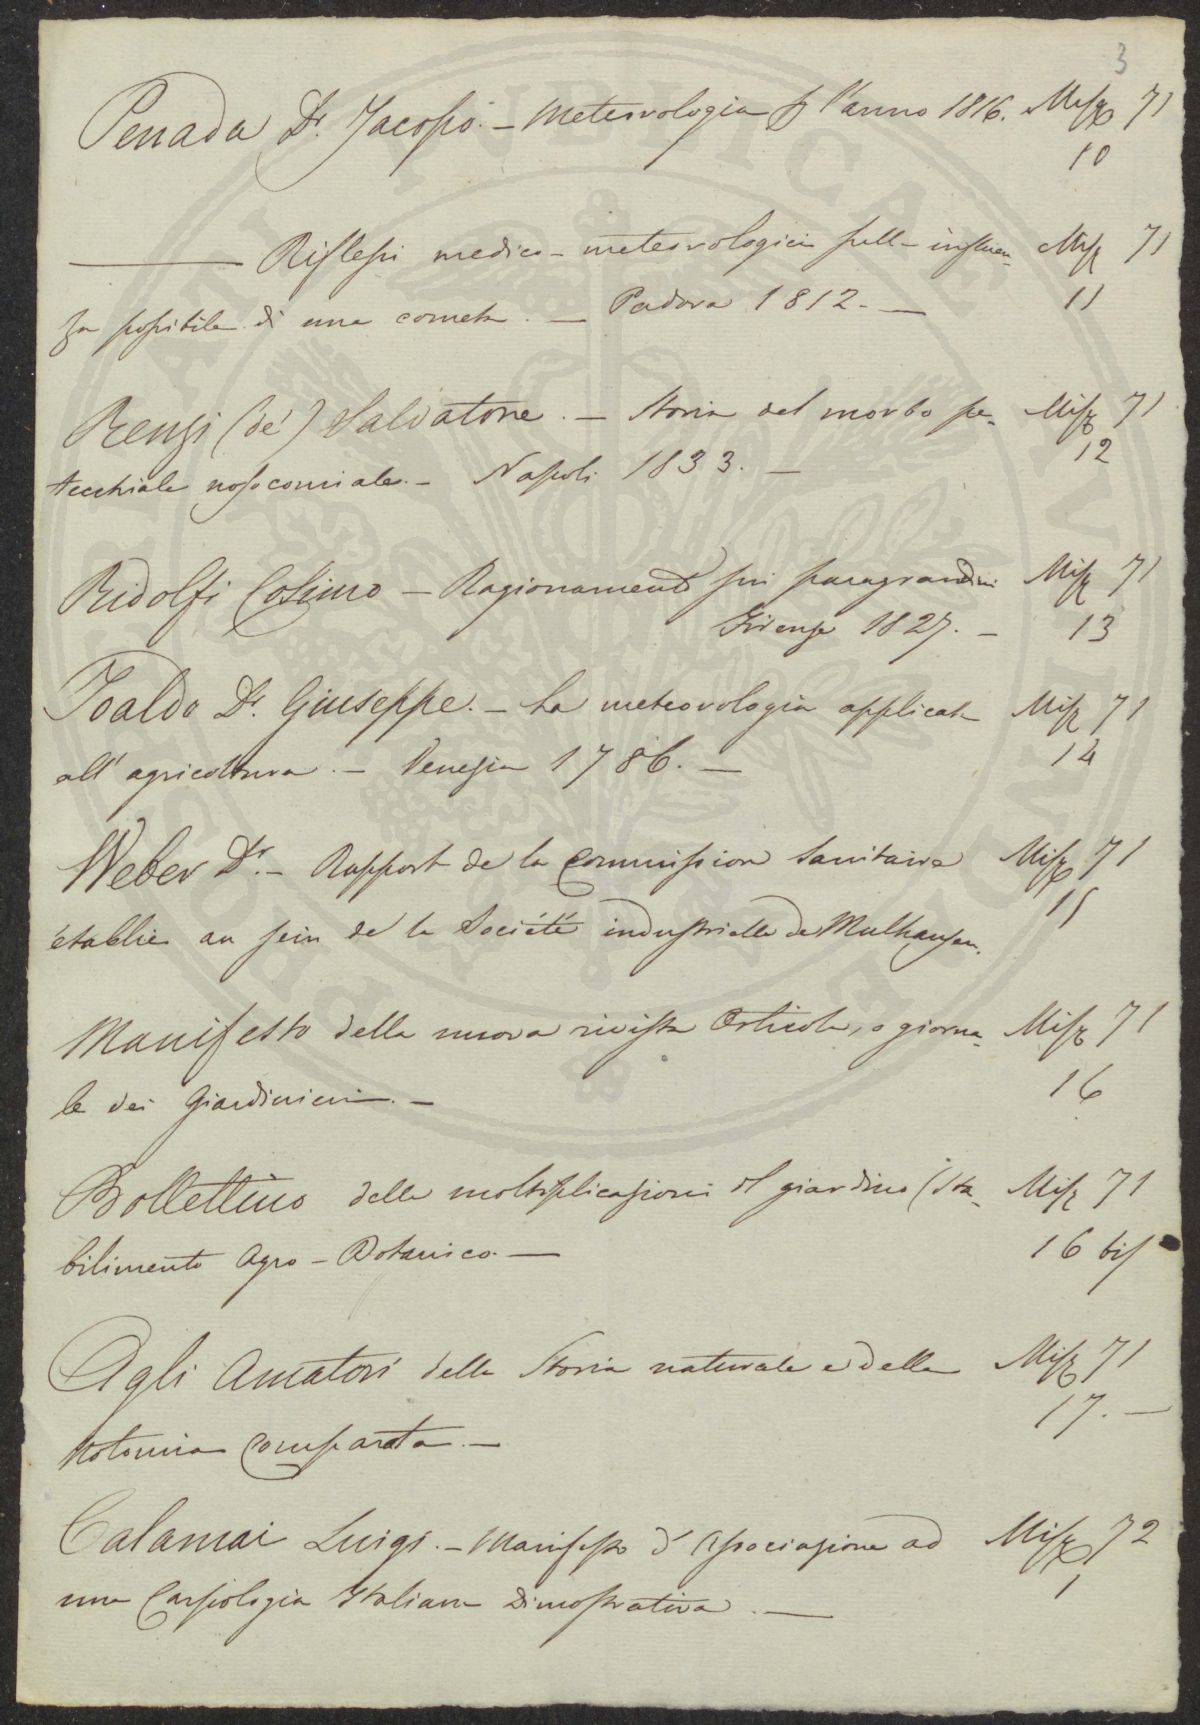 3
Penada Dr. Jacopo. - Meteorologia p l'anno 1816. Misc 71
10
Riflessi medico-meteorologici sull-influen- Misc 71
za possibile di una cometa. - Padova 1812. - 11
Renzi (de') Salvatore. - Storia del morbo pe- Misc 71
tecchiale nosocomiale. - Napoli 1833. - 12
Ridolfi Cosimo - Ragionamento sui paragrandini Misc 71
Firenze 1827. - 13
Toaldo Dr. Giuseppe. - La meteorologia applicata Misc 71
all'agricoltura. - Venezia 1786. - 14
Weber Dr. - Rapport de la Commission Sanitaire Misc 71
établie au sein de la Société industrielle de Mulhausen. 15
Manifesto della nuova rivista Orticola, o giorna- Misc 71
le dei Giardinieri. - 16
Bollettino delle moltiplicazioni del giardino (Sta- Misc 71
bilimento Agro-Botanico. - 16 bis
Agli Amatori della Storia naturale e della Misc 71
Notomia Comparata. - 17. -
Calamai Luigi. - Manifesto d'Associazione ad Misc 72
una Carpologia Italiana Dimostrativa. - 1